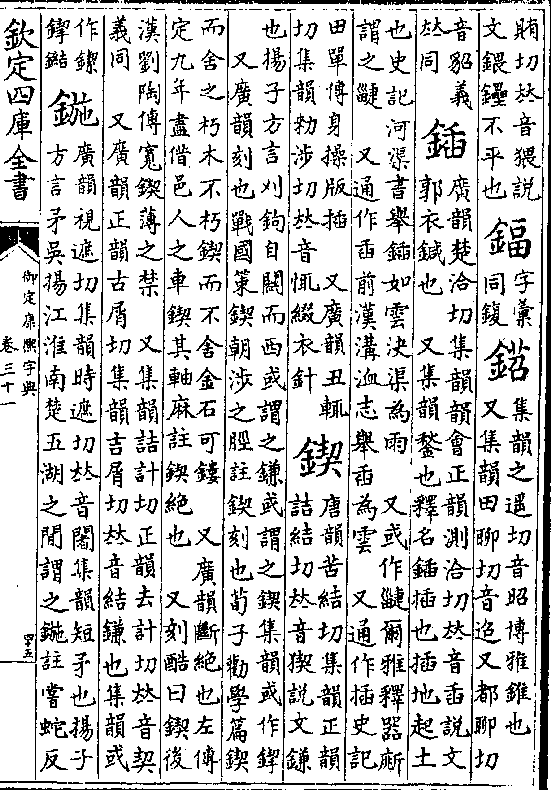 賄切𠀤音猥説
文鍡鑸不平也
鍢
字彙
同鍑
鍣
集韻之遥切音昭博雅錐也
又集韻田聊切音迢又都聊切
音貂義
𠀤同
鍤
廣韻楚洽切集韻韻會正韻測洽切𠀤音臿説文
郭衣鍼也 又集韻鍫也釋名鍤插也插地起土
也史記河渠書舉鍤如雲決渠為雨 又或作疀爾雅釋器㪿
謂之疀 又通作臿前漢溝洫志舉臿為雲 又通作插史記
田單傳身操版插 又廣韻丑輒
切集韻勑涉切𠀤音㥦綴衣針
鍥
唐韻苦結切集韻正韻
詰結切𠀤音猰説文鎌
也揚子方言刈鉤自關而西或謂之鎌或謂之鍥集韻或作
又廣韻刻也戰國策鍥朝涉之脛註鍥刻也荀子勸學篇鍥
而舍之朽木不朽鍥而不舍金石可鏤 又廣韻斷絶也左傳
定九年盡借邑人之車鍥其軸麻註鍥絶也 又刻酷曰鍥後
漢劉陶傳寛鍥薄之禁 又集韻詰計切正韻去計切𠀤音契
義同 又廣韻正韻古屑切集韻吉屑切𠀤音結鎌也集韻或
作
鍦
廣韻視遮切集韻時遮切𠀤音闍集韻短矛也揚子
方言矛吳揚江淮南楚五湖之間謂之鍦註嘗蛇反
欽定四庫全書
御定康熙字典
卷三十一
四五